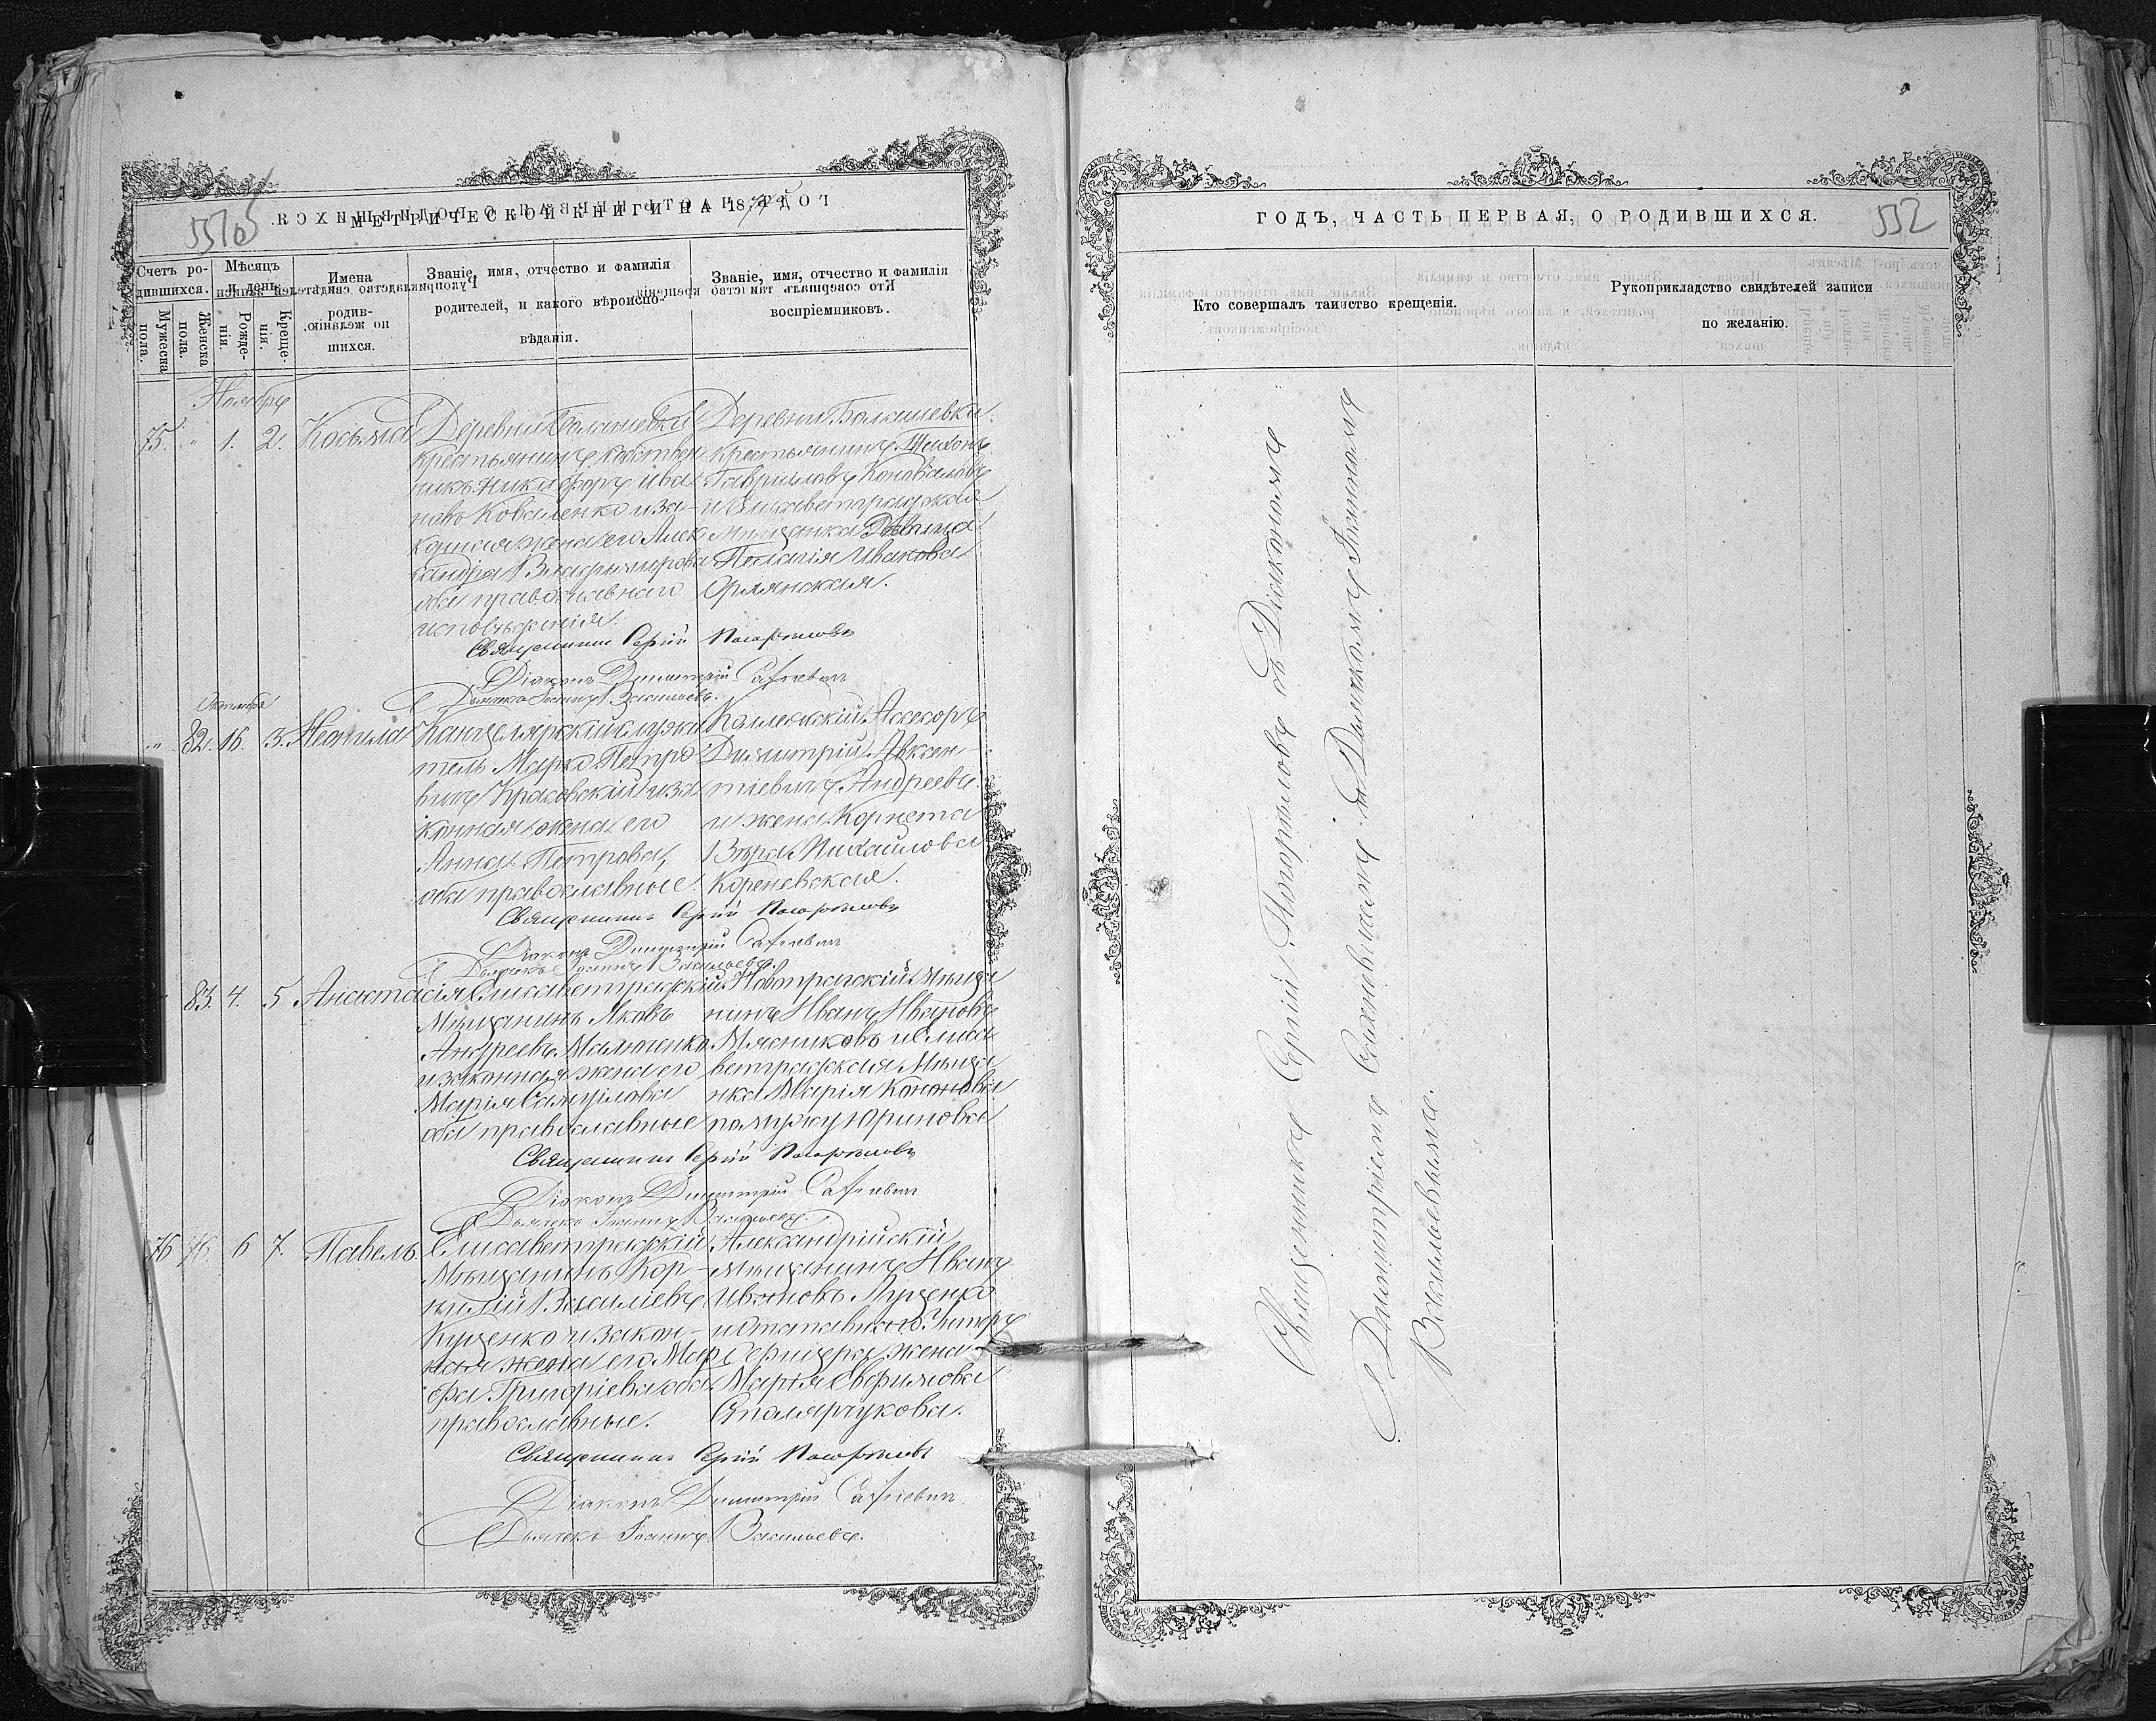 МЕТРИЧЕСКОЙ КНИГИ НА 187
Счетъ ро-
дившихся.
Мужеска
пола.
Женска
пола.
Мѣсяцъ
и день
Рожде-
нія
Креще-
нія.
Имена
родив-
шихся.
Званіе, имя, отчество и фамилія
родителей, и какого вѣроиспо-
вѣданія.
Званіе, имя, отчество и фамилія
воспріемниковъ.
Ноябрь
75. " 1. 2. Косьма
Деревни Балашевки
крестьянинъ собствен
никъ Никифоръ Ива
новъ Коваленко и за-
конная жена его Алек
сандра Владимирова
оба православнаго
исповѣданія.
Деревни Балашевки
крестьянинъ Тихонъ
Гавриловъ Коноваловъ
и Елисаветградская
мѣщанка Дѣвица
Пелагія Иванова
Орлянская.
Священникъ Сергій
Діаконъ Димитрій
Дьячекъ Іоаннъ Васильевъ.
Октября
" 82. 16. 3. Неонила
Канцелярскій служи
тель Марко Петро
вичъ Красовскій и за
конная жена его
Анна Петрова,
оба православные.
Коллежскій Ассесоръ
Димитрій Авксен-
тіевичъ Андреевъ
и жена Корнета
Вѣра Михайлова
Кореневская.
Священникъ Сергій
Діаконъ Димитрій
Дьячекъ Іоаннъ Васильевъ.
83. 4. 5 Анастасія
Елисаветградскій
Мѣщанинъ Яковъ
Андреевъ Малюченко
и законная жена его
Марія Самуилова
оба православные
Мѣща
нинъ Иванъ Ивановъ
Мясниковъ и Елиса
ветградская Мѣща
нка Марія Кононова
по мужу Юринова
Священникъ Сергій
Діаконъ Димитрій
Дьячекъ Іоаннъ Васильевъ.
76 76. 6 7. Павелъ.
Елисаветградскій
Мѣщанинъ Кор-
нилій Василіевъ
Куценко и закон-
ная жена его Мар
фа Григоріева оба
православные.
Александрійскій
мѣщанинъ Иванъ
Ивановъ Луценко
и Отставного Унтеръ
Офицера жена
Марія Евфимова
Столярчукова.
Священникъ Сергій
Діаконъ Димитрій
Дьячекъ Іоаннъ Васильевъ.
ГОДЪ, ЧАСТЬ ПЕРВАЯ, О РОДИВШИХСЯ.
552
Кто совершалъ таинство крещенія.
Рукоприкладство свидѣтелей записи
по желанію.
Священникъ Сергій съ Діакономъ
Димитріемъ и Дьячкомъ Іоанномъ
Васильевымъ.